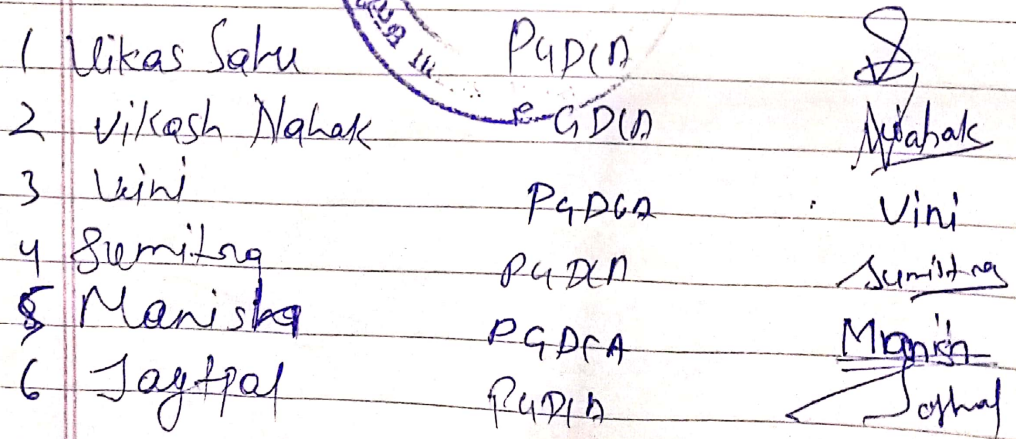 1 Vikas Sahu PGDCA
2 Vikash Nahak PGDCA Nahak
3 Vini PGDCA Vini
4 Sumitra PGDCA Sumitra
5 Manisha PGDCA Manish
6 Jagtpal PGDCA